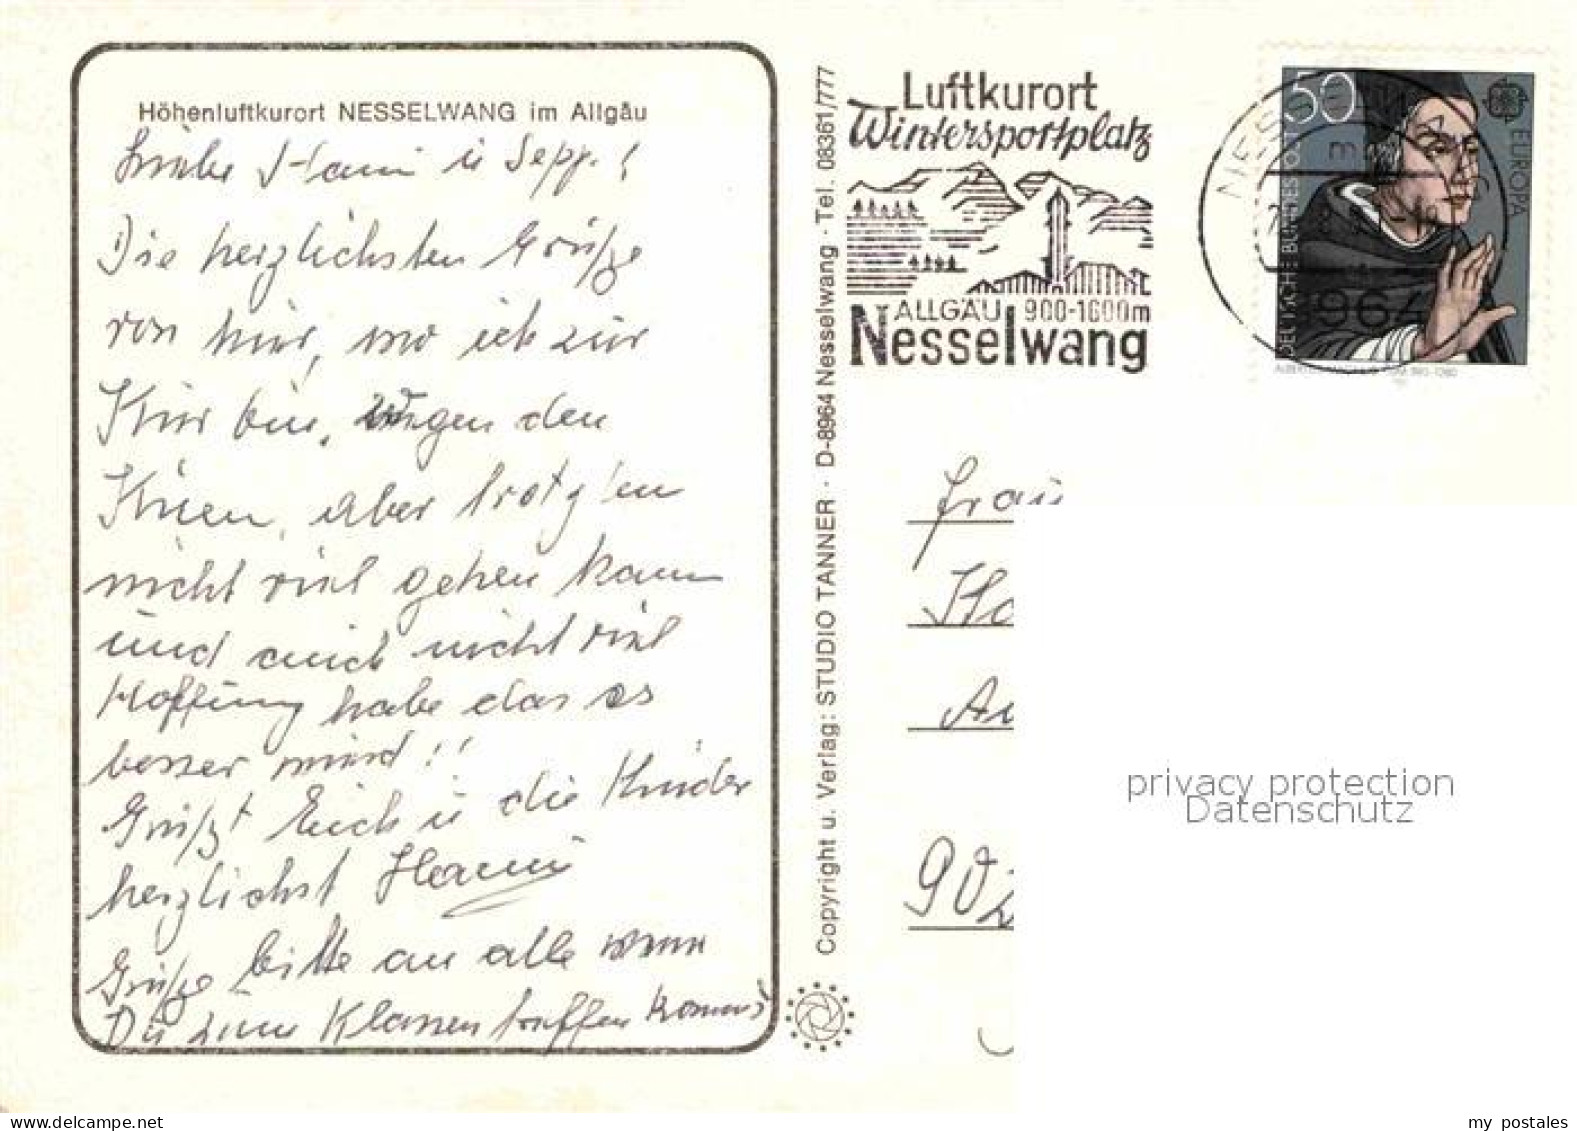 Höhenluftkurort NESSELWANG im Allgäu
Liebe Hanni u Sepp!
Die herzlichsten Grüße
von hier, wo ich zur
Kur bin, wegen den
Knien, aber trotzden
nicht viel gehen kann
und auch nicht viel
Hoffnung habe das es
besser wird!!
Grüßt Euch u die Kinder
herzlichst Hanni
Grüße bitte an alle wenn
Du zum Klassentreffen kommst
Copyright u. Verlag: STUDIO TANNER · D-8964 Nesselwang · Tel. 08361/777
Luftkurort
Wintersportplatz
ALLGÄU 900-1600m
Nesselwang
NESSELW
8964
50
DEUTSCHE BUNDESPOST
EUROPA
Frau
Ho
Au
902
privacy protection
Datenschutz
my postales